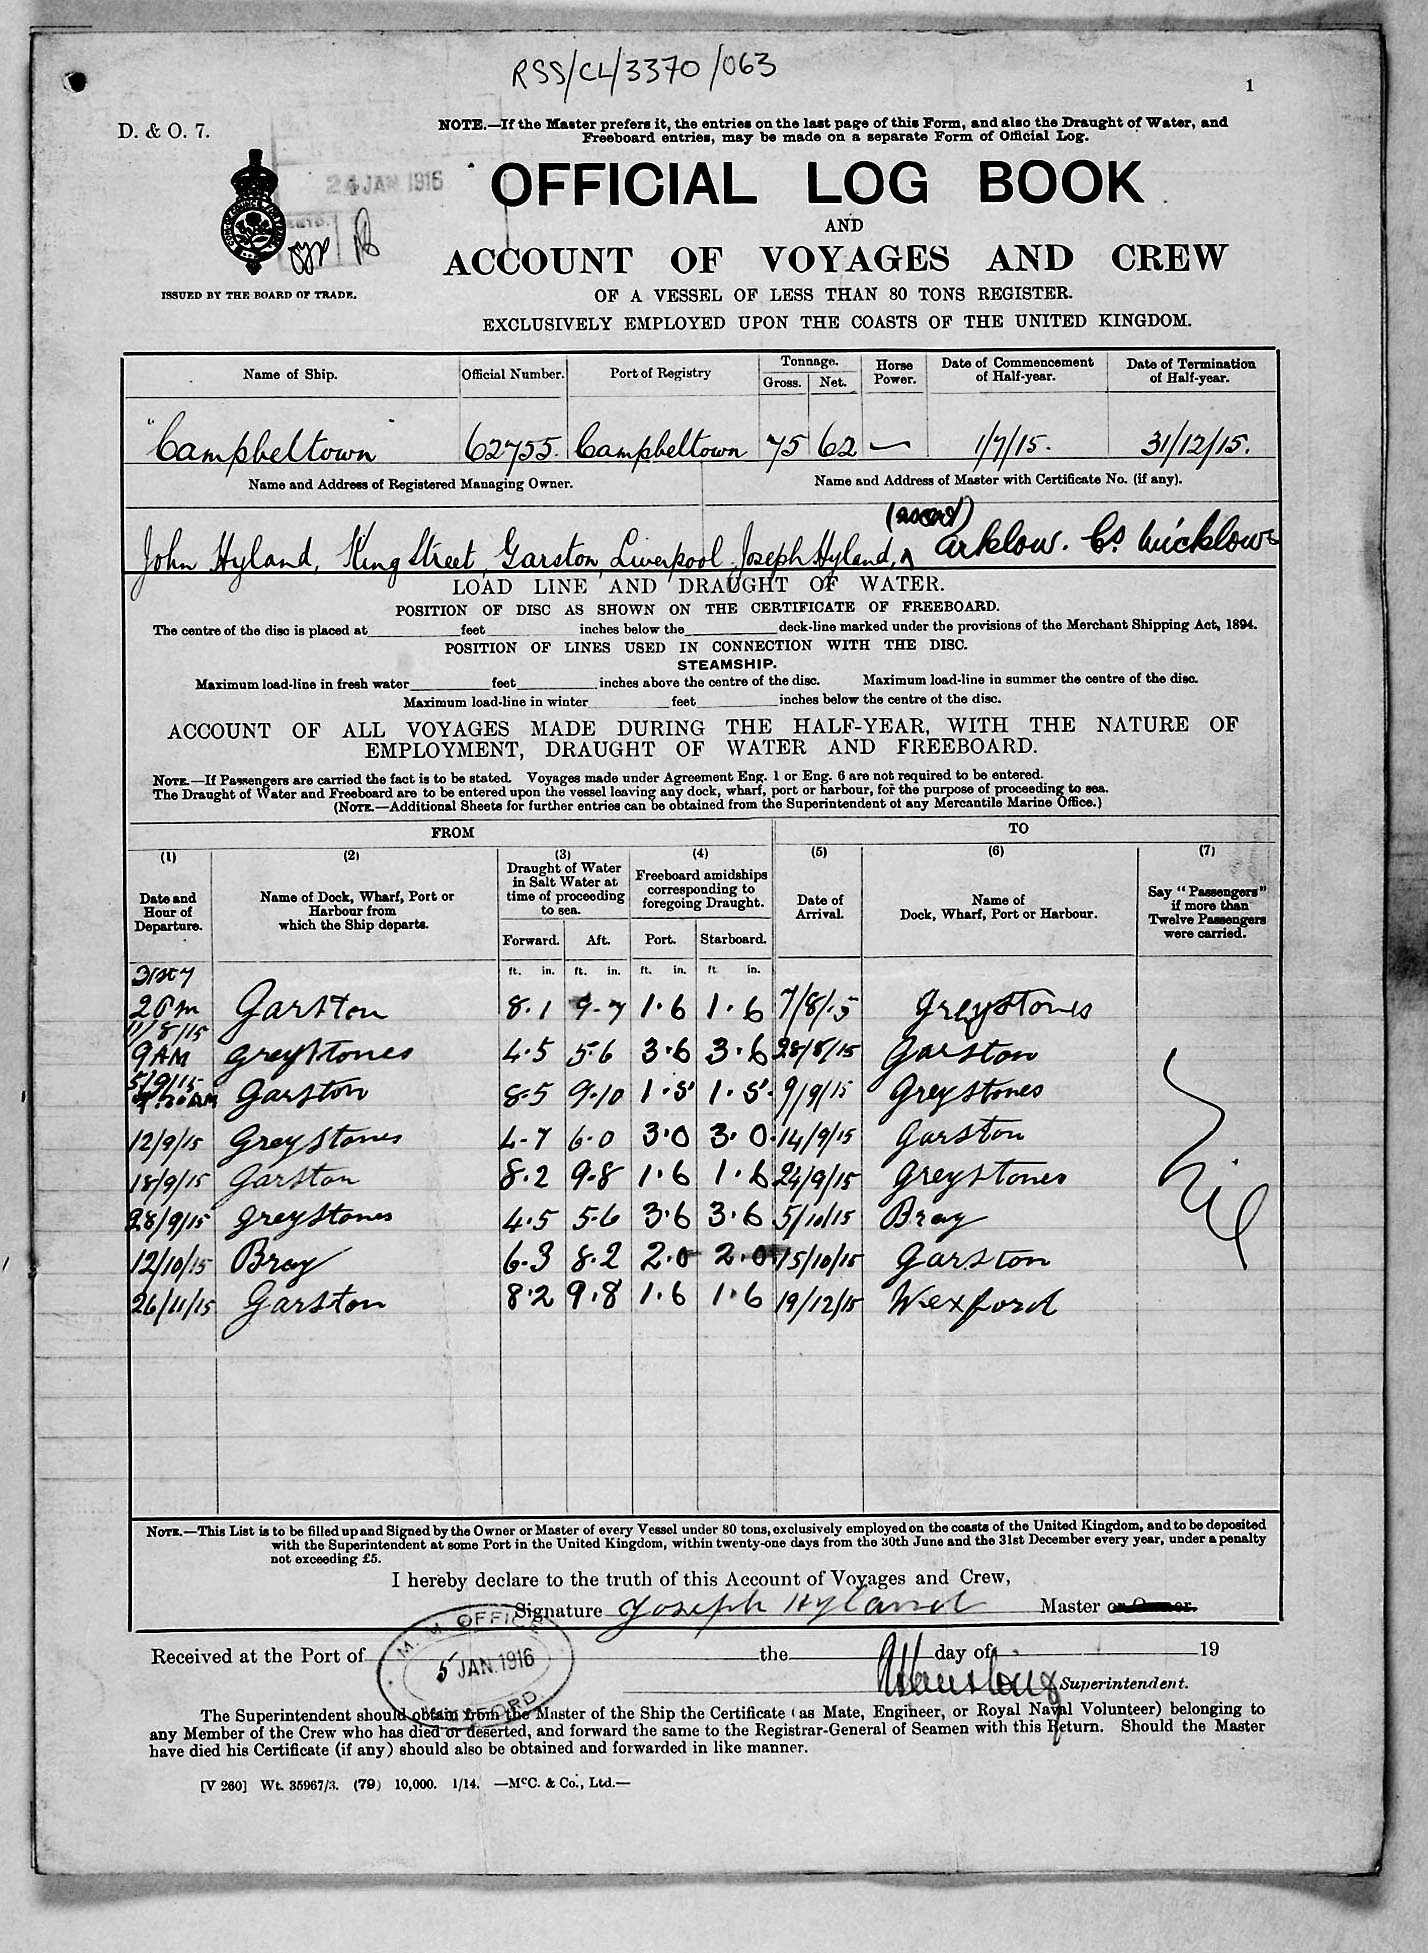 RSS/CL/3370/063
1
D. & O. 7.
NOTE.—If the Master prefers it, the entries on the last page of this Form, and also the Draught of Water, and
Freeboard entries, may be made on a separate Form of Official Log.
24 JAN. 1916
OFFICIAL LOG BOOK
AND
ACCOUNT OF VOYAGES AND CREW
ISSUED BY THE BOARD OF TRADE.
OF A VESSEL OF LESS THAN 80 TONS REGISTER.
EXCLUSIVELY EMPLOYED UPON THE COASTS OF THE UNITED KINGDOM.
Name of Ship. Official Number. Port of Registry Tonnage. Gross. Net. Horse Power. Date of Commencement of Half-year. Date of Termination of Half-year.
"Campbeltown" 62755. Campbeltown 75 62 — 1/7/15. 31/12/15.
Name and Address of Registered Managing Owner. Name and Address of Master with Certificate No. (if any).
John Hyland, King Street, Garston, Liverpool. Joseph Hyland, Arklow. Co Wicklow
LOAD LINE AND DRAUGHT OF WATER.
POSITION OF DISC AS SHOWN ON THE CERTIFICATE OF FREEBOARD.
The centre of the disc is placed at feet inches below the deck-line marked under the provisions of the Merchant Shipping Act, 1894.
POSITION OF LINES USED IN CONNECTION WITH THE DISC.
STEAMSHIP.
Maximum load-line in fresh water feet inches above the centre of the disc. Maximum load-line in summer the centre of the disc.
Maximum load-line in winter feet inches below the centre of the disc.
ACCOUNT OF ALL VOYAGES MADE DURING THE HALF-YEAR, WITH THE NATURE OF
EMPLOYMENT, DRAUGHT OF WATER AND FREEBOARD.
NOTE.—If Passengers are carried the fact is to be stated. Voyages made under Agreement Eng. 1 or Eng. 6 are not required to be entered.
The Draught of Water and Freeboard are to be entered upon the vessel leaving any dock, wharf, port or harbour, for the purpose of proceeding to sea.
(NOTE.—Additional Sheets for further entries can be obtained from the Superintendent of any Mercantile Marine Office.)
FROM TO
(1) (2) (3) (4) (5) (6) (7)
Date and Hour of Departure. Name of Dock, Wharf, Port or Harbour from which the Ship departs. Draught of Water in Salt Water at time of proceeding to sea. Freeboard amidships corresponding to foregoing Draught. Date of Arrival. Name of Dock, Wharf, Port or Harbour. Say "Passengers" if more than Twelve Passengers were carried.
Forward. Aft. Port. Starboard.
ft. in. ft. in. ft. in. ft in.
31st 7
2 Pm Garston 8.1 9-7 1.6 1.6 7/8/15 Greystones
11/8/15
9 AM Greystones 4.5 5.6 3.6 3.6 28/8/15 Garston
5/9/15
AM Garston 8.5 9.10 1.5 1.5 9/9/15 Greystones
12/9/15 Greystones 4-7 6-0 3.0 3.0 14/9/15 Garston
18/9/15 Garston 8.2 9.8 1.6 1.6 24/9/15 Greystones
28/9/15 Greystones 4.5 5.6 3.6 3.6 5/10/15 Bray
12/10/15 Bray 6.3 8.2 2.0 2.0 15/10/15 Garston
26/11/15 Garston 8.2 9.8 1.6 1.6 19/12/15 Wexford
Nil
NOTE.—This List is to be filled up and Signed by the Owner or Master of every Vessel under 80 tons, exclusively employed on the coasts of the United Kingdom, and to be deposited
with the Superintendent at some Port in the United Kingdom, within twenty-one days from the 30th June and the 31st December every year, under a penalty
not exceeding £5.
I hereby declare to the truth of this Account of Voyages and Crew,
Signature Joseph Hyland Master or Owner.
M. M. OFFICE
5 JAN. 1916
Received at the Port of the day of 19
Superintendent.
The Superintendent should obtain from the Master of the Ship the Certificate (as Mate, Engineer, or Royal Naval Volunteer) belonging to
any Member of the Crew who has died or deserted, and forward the same to the Registrar-General of Seamen with this Return. Should the Master
have died his Certificate (if any) should also be obtained and forwarded in like manner.
[V 260] Wt. 35967/3. (79) 10,000. 1/14. —McC. & Co., Ltd.—